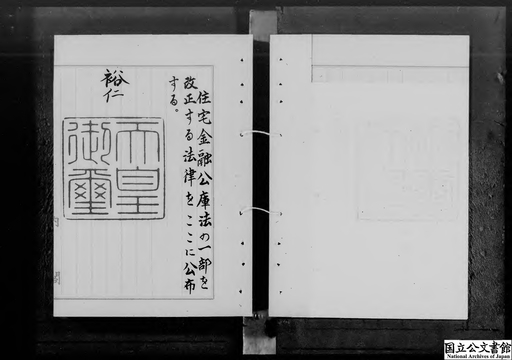 住宅金融公庫法の一部を
改正する法律をここに公布
する。
裕仁
天皇
御璽
国立公文書館
National Archives of Japan